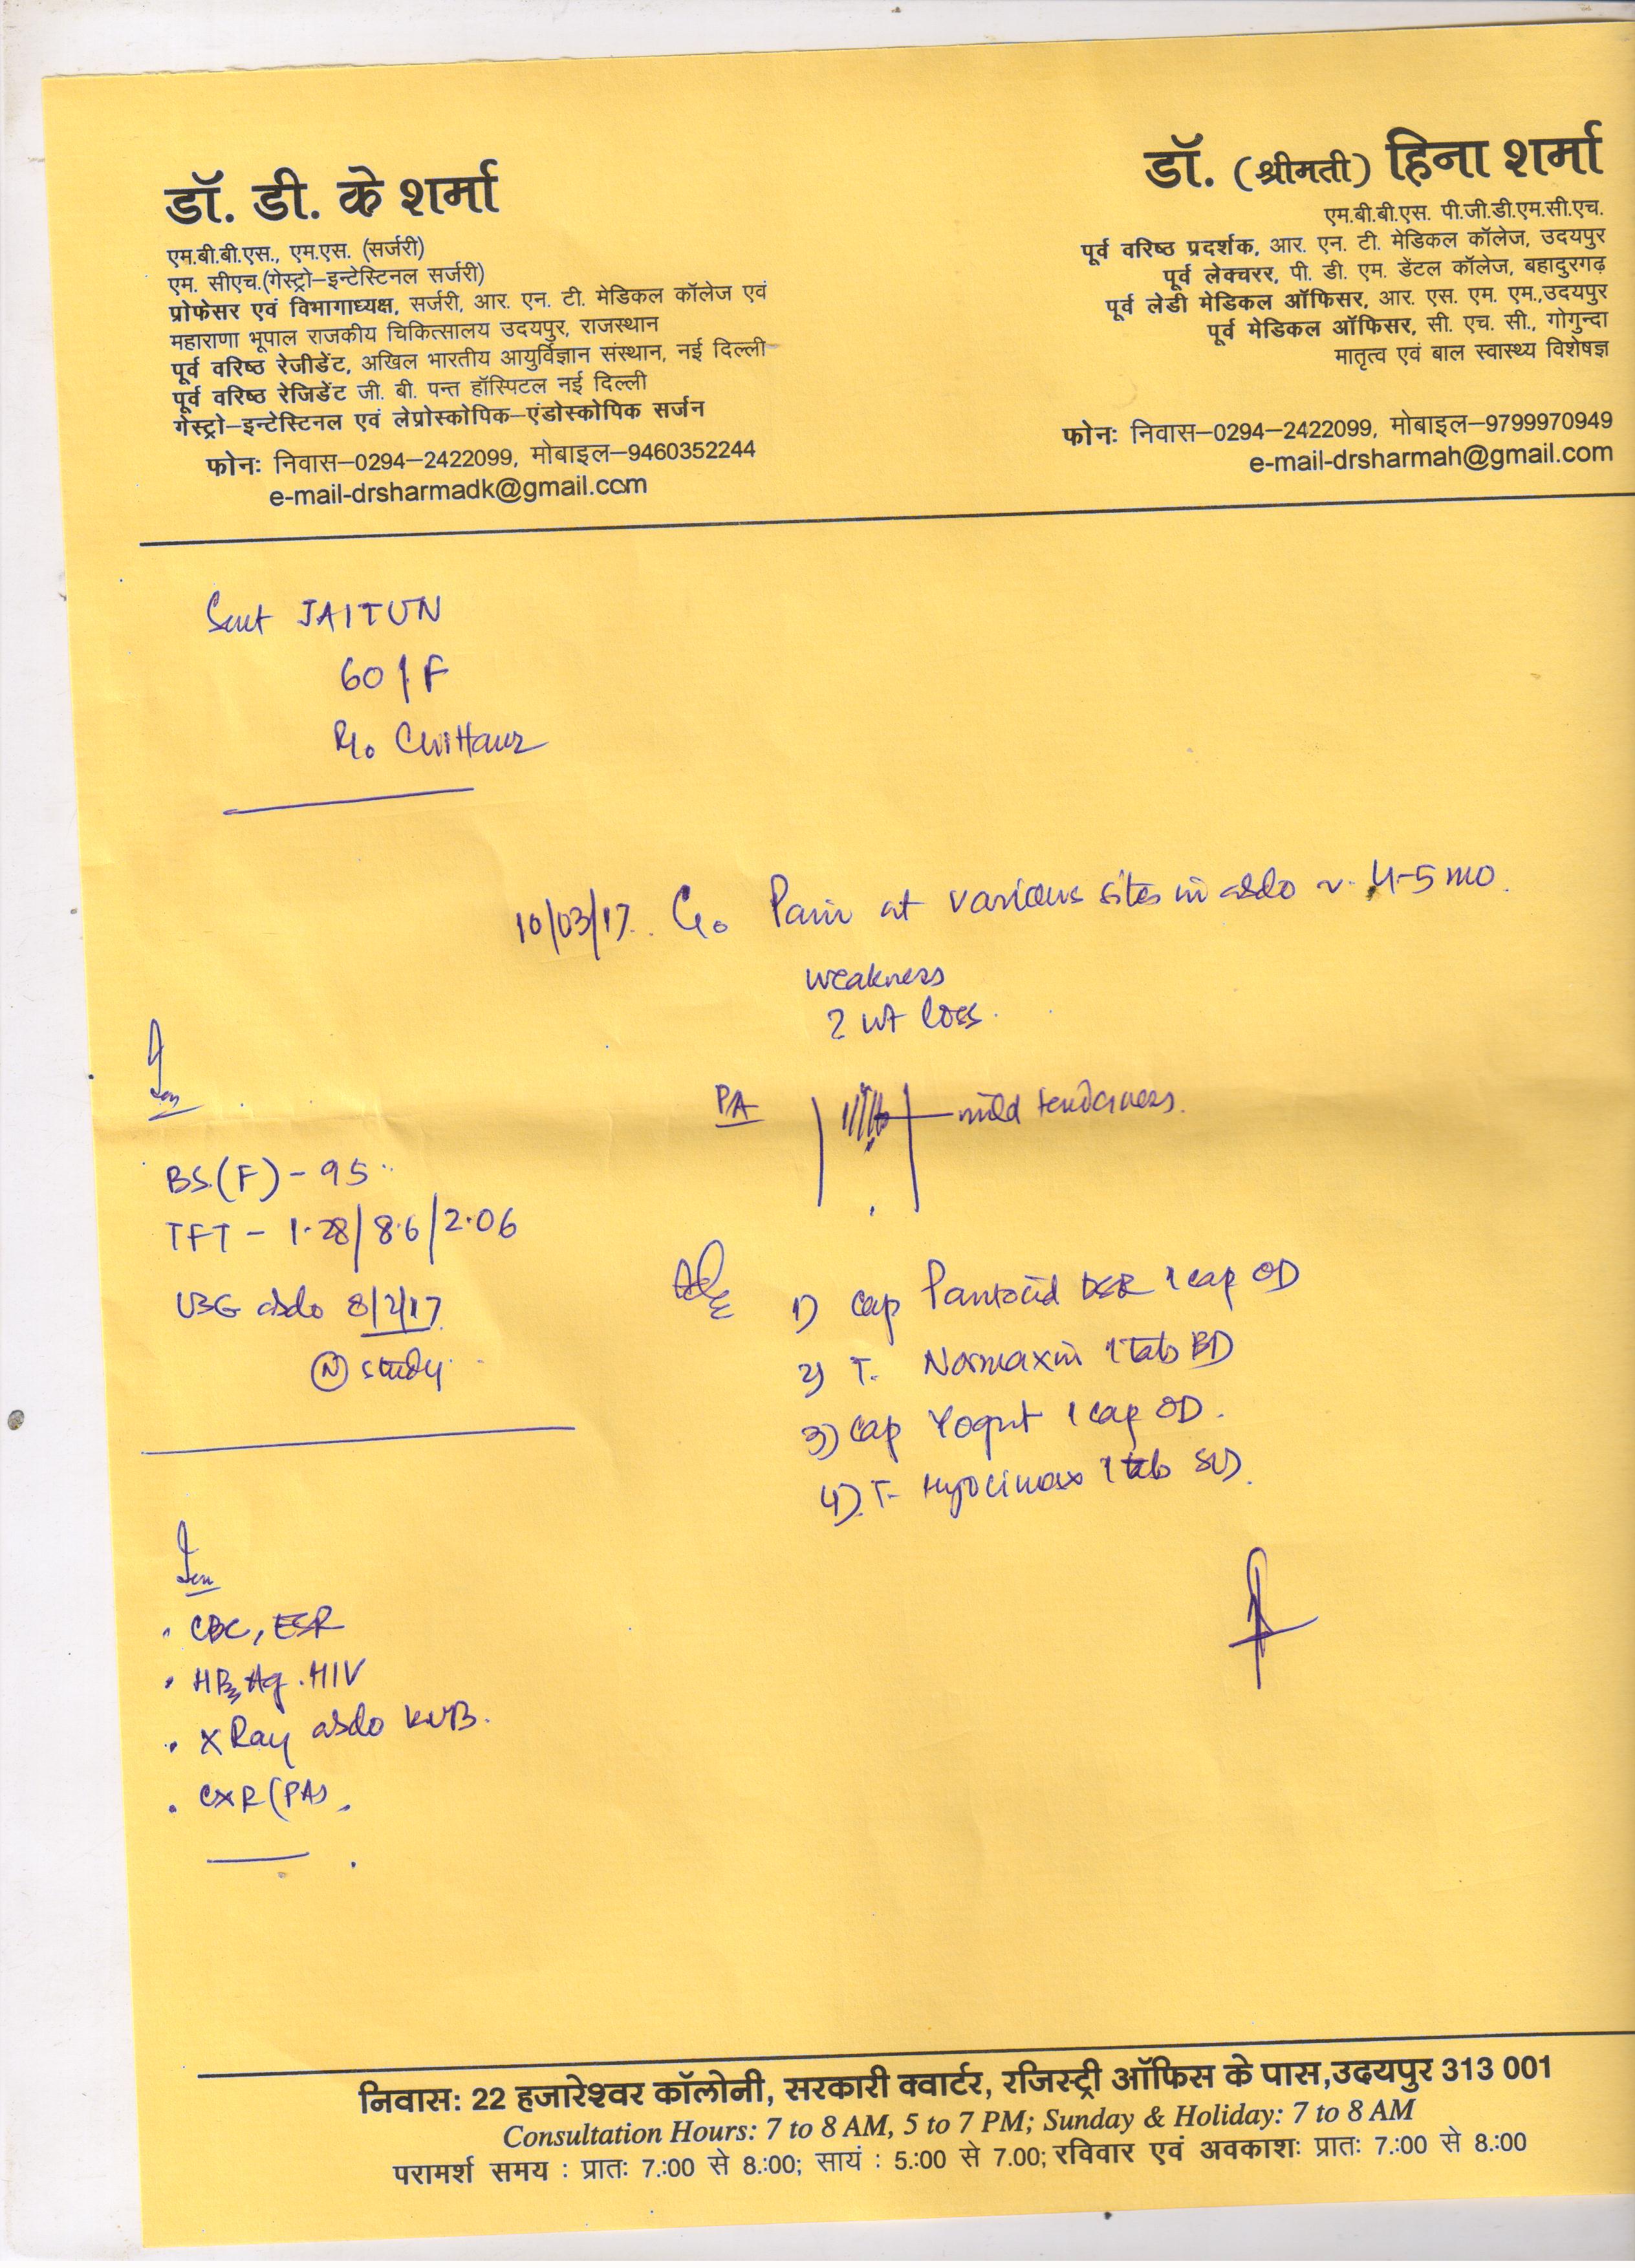 डॉ. डी. के शर्मा
एम.बी.बी.एस., एम.एस. (सर्जरी)
एम. सीएच.(गेस्ट्रो–इन्टेस्टिनल सर्जरी)
प्रोफेसर एवं विभागाध्यक्ष, सर्जरी, आर. एन. टी. मेडिकल कॉलेज एवं
महाराणा भूपाल राजकीय चिकित्सालय उदयपुर, राजस्थान
पूर्व वरिष्ठ रेजीडेंट, अखिल भारतीय आयुर्विज्ञान संस्थान, नई दिल्ली
पूर्व वरिष्ठ रेजिडेंट जी. बी. पन्त हॉस्पिटल नई दिल्ली
गेस्ट्रो–इन्टेस्टिनल एवं लेप्रोस्कोपिक–एंडोस्कोपिक सर्जन
फोनः निवास–0294–2422099, मोबाइल–9460352244
e-mail-drsharmadk@gmail.com
डॉ. (श्रीमती) हिना शर्मा
एम.बी.बी.एस. पी.जी.डी.एम.सी.एच.
पूर्व वरिष्ठ प्रदर्शक, आर. एन. टी. मेडिकल कॉलेज, उदयपुर
पूर्व लेक्चरर, पी. डी. एम. डेंटल कॉलेज, बहादुरगढ़
पूर्व लेडी मेडिकल ऑफिसर, आर. एस. एम. एम.,उदयपुर
पूर्व मेडिकल ऑफिसर, सी. एच. सी., गोगुन्दा
मातृत्व एवं बाल स्वास्थ्य विशेषज्ञ
फोनः निवास–0294–2422099, मोबाइल–9799970949
e-mail-drsharmah@gmail.com
Smt JAITUN
60/F
R/o Chittaur
10/03/17. C/o Pain at various sites in abdo ~ 4-5 mo.
weakness
? wt loss.
PA mild tenderness.
BS.(F) - 95
TFT - 1.28/8.6/2.06
USG abdo 8/2/17
(N) study.
1) cap Pantocid DSR 1 cap OD
2) T. Normaxin 1 tab BD
3) cap Yogut 1 cap OD.
4) T- Hyocimax 1 tab
. CBC, ESR
. HBsAg. HIV
. X Ray abdo KUB.
. CXR (PA).
निवासः 22 हजारेश्वर कॉलोनी, सरकारी क्वार्टर, रजिस्ट्री ऑफिस के पास,उदयपुर 313 001
Consultation Hours: 7 to 8 AM, 5 to 7 PM; Sunday & Holiday: 7 to 8 AM
परामर्श समय : प्रातः 7.:00 से 8.:00; सायं : 5.:00 से 7.00; रविवार एवं अवकाशः प्रातः 7.:00 से 8.:00